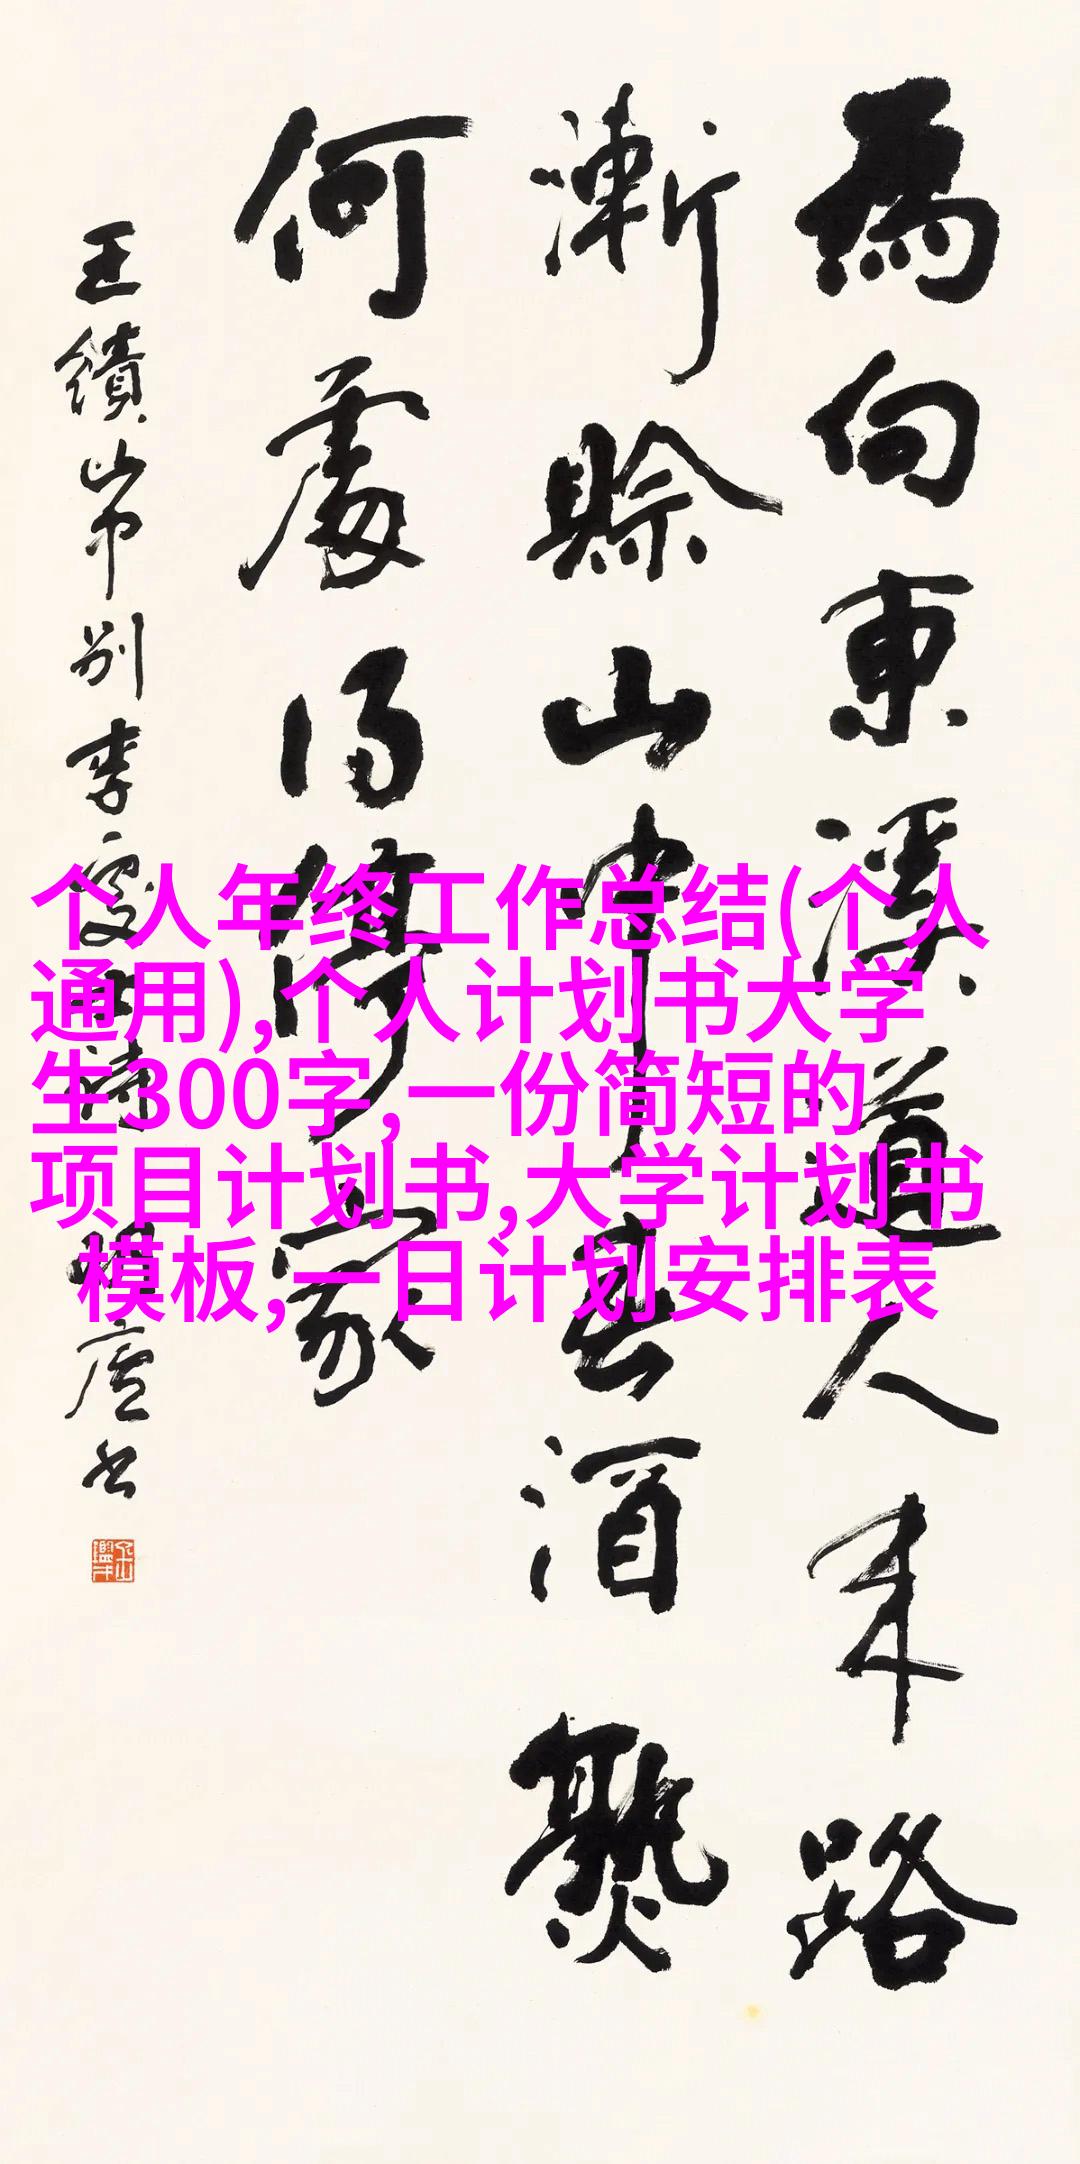 為向東溪道人來路
漸賒山中春酒熟
何處得停家
王績山中別李處士詩 廬書
个人年终工作总结(个人
通用),个人计划书大学
生300字,一份简短的
项目计划书,大学计划书
模板,一日计划安排表